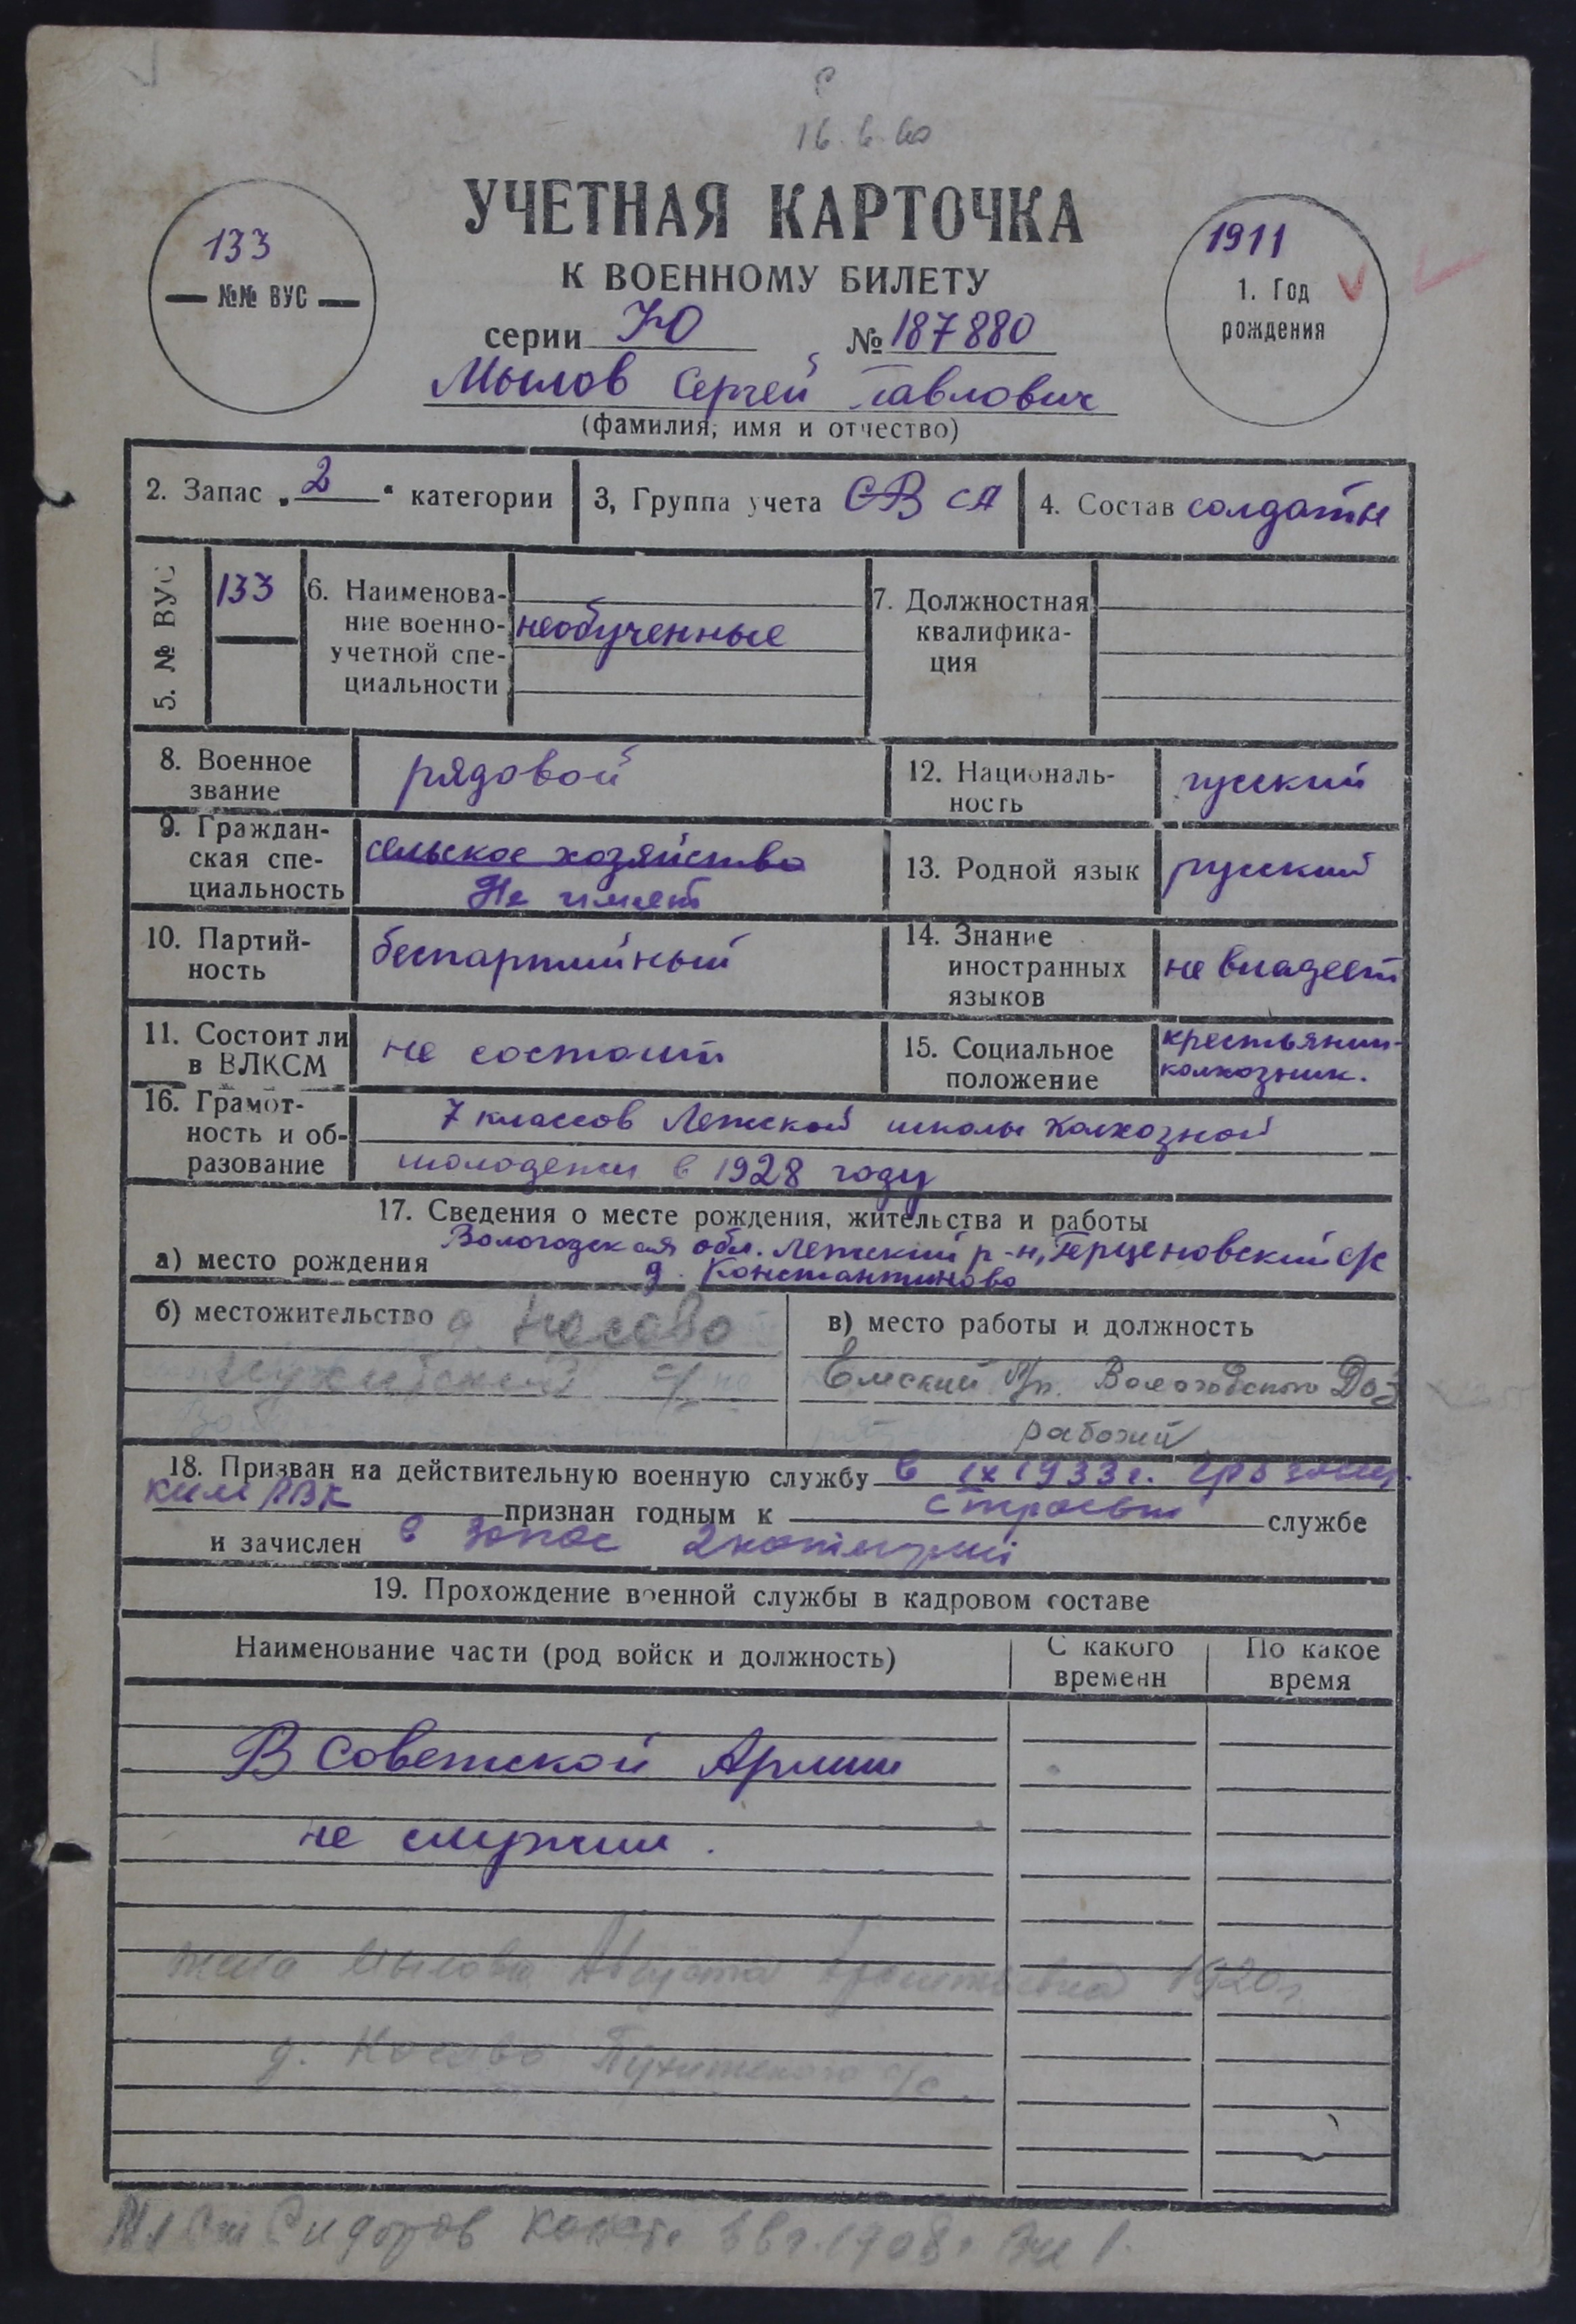 16.6.60
УЧЕТНАЯ КАРТОЧКА
К ВОЕННОМУ БИЛЕТУ
133
№№ ВУС
1911
1. Год
рождения
серии Ю № 187880
Мылов Сергей Павлович
(фамилия, имя и отчество)
2. Запас „2“ категории
3, Группа учета СВ СА
4. Состав солдаты
5. № ВУС
133
6. Наименова-
ние военно-
учетной спе-
циальности
необученные
7. Должностная
квалифика-
ция
8. Военное
звание
рядовой
12. Националь-
ность
русский
9. Граждан-
ская спе-
циальность
сельское хозяйство
Не имеет
13. Родной язык
русский
10. Партий-
ность
беспартийный
14. Знание
иностранных
языков
не владеет
11. Состоит ли
в ВЛКСМ
не состоит
15. Социальное
положение
крестьянин-
колхозник.
16. Грамот-
ность и об-
разование
7 классов Лежской школы колхозной
молодежи в 1928 году
17. Сведения о месте рождения, жительства и работы
Вологодская обл. Лежский р-н, Герценовский с/с
а) место рождения
д. Константиново
б) местожительство д. Носово
с/с
в) место работы и должность
Емский Вологодского Доз
рабочий
18. Призван на действительную военную службу в IX 1933 г.
ким РВК признан годным к строевой службе
и зачислен в запас 2 категории
19. Прохождение военной службы в кадровом составе
Наименование части (род войск и должность)
С какого
времени
По какое
время
В Советской Армии
не служил.
жена Мылова Августа 1920 г.
д. Носово с/с.
Сидоров 1908 г.